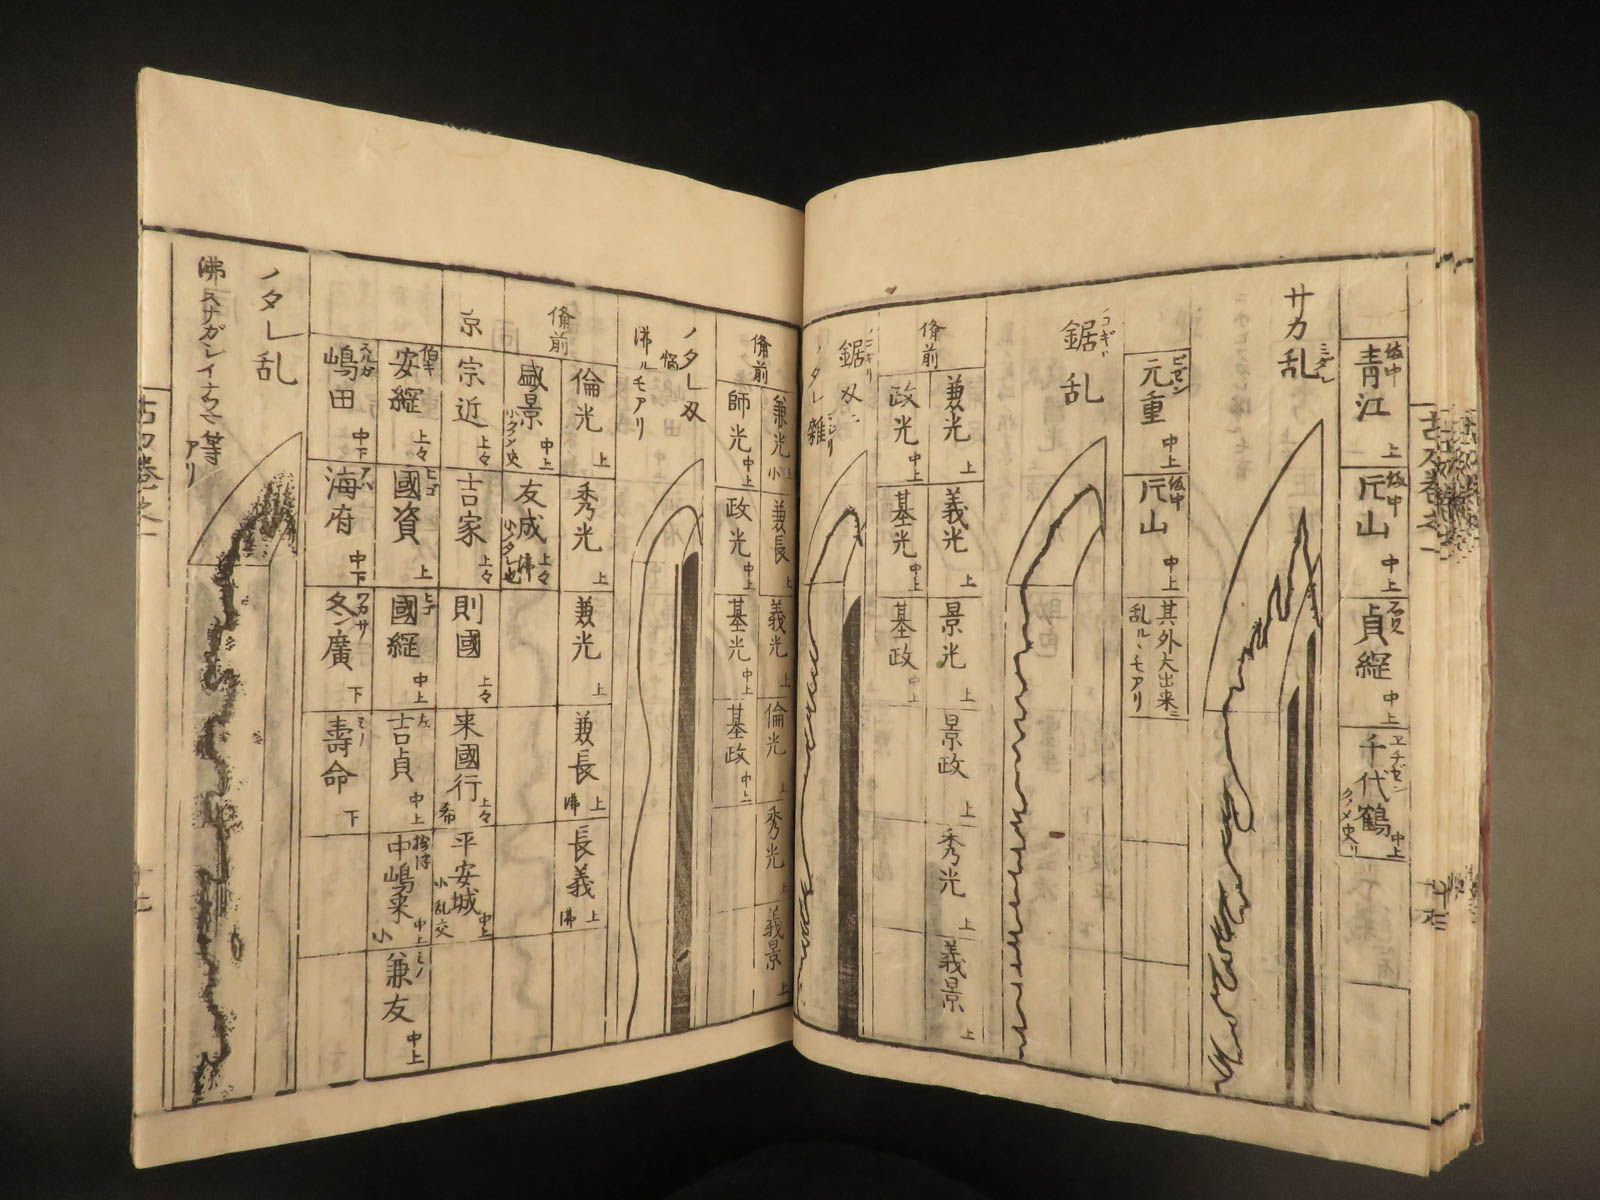 備中 青江 上
備中 片山 中上
貞綱 中上
ヱチゼン 千代鶴 中上
サカ乱
ビゼン 元重 中上
備中 片山 中上
其外大出来ニ
乱ルヽモアリ
鋸乱
備前
兼光 上
義光 上
景光 上
景政 上
秀光 上
義景 上
政光 中上
基光 中上
基政 中上
鋸刄ニ
ノタレ雜
備前
兼光 上
兼長 上
義光 上
倫光 上
秀光
義景 上
師光 中上
政光 中上
基光 中上
基政 中上
ノタレ刄
沸ルモアリ
備前
倫光 上
秀光 上
兼光 上
兼長 上 沸
長義 上 沸
盛景 中上
友成 上々
京
宗近 上々
吉家 上々
則國 上々
来國行 上々 希
平安城 中上 小乱交
伯キ 安綱 上々
國資 上
國綱 中上
左 吉貞 中上
中嶋来 中上
ミノ 兼友 中上
スルガ 嶋田 中下
海府 中下
ワカサ 冬廣 下
ミノ 壽命 下
ノタレ乱
沸スナガシイナヅマ等
アリ